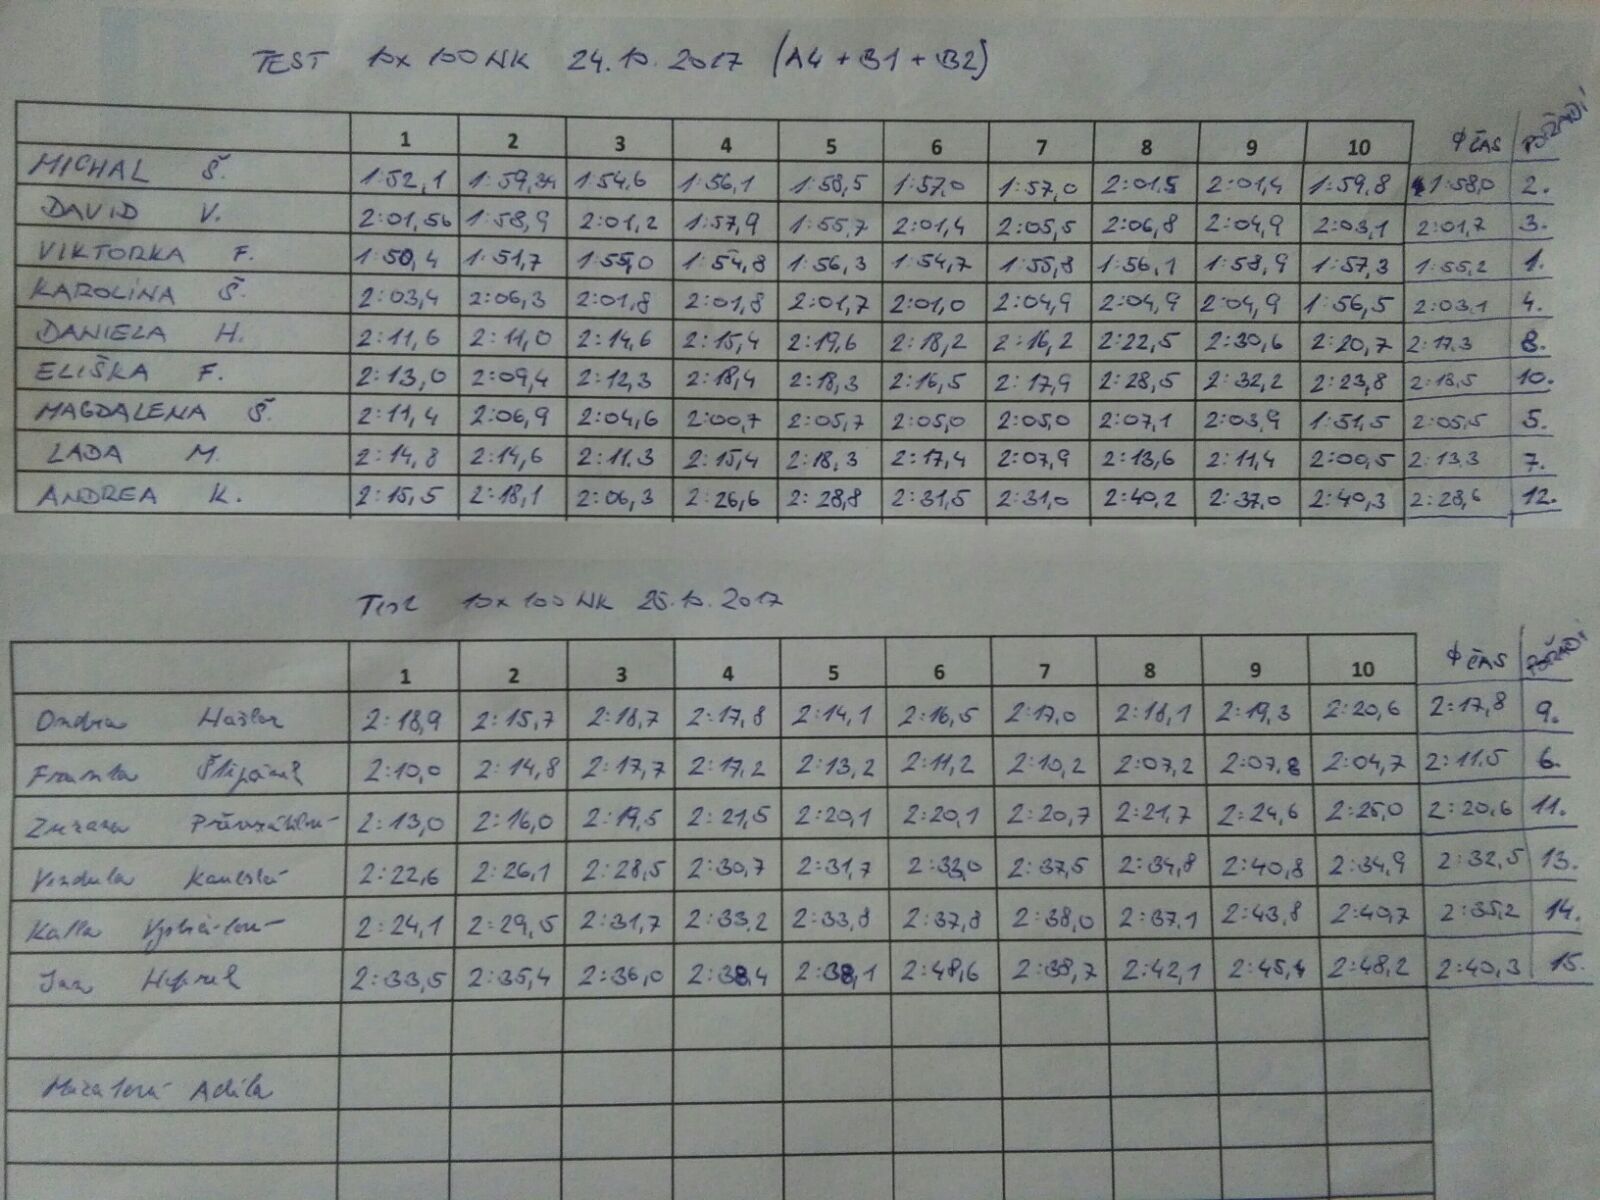 TEST 10x100 NK 24.10.2017 (A4+B1+B2)
1 2 3 4 5 6 7 8 9 10 φ ČAS POŘADÍ
MICHAL Š. 1:52,1 1:59,34 1:54,6 1:56,1 1:58,5 1:57,0 1:57,0 2:01,5 2:01,4 1:59,8 1:58,0 2.
DAVID V. 2:01,56 1:58,9 2:01,2 1:57,9 1:55,7 2:01,4 2:05,5 2:06,8 2:04,9 2:03,1 2:01,7 3.
VIKTORKA F. 1:50,4 1:51,7 1:55,0 1:54,8 1:56,3 1:54,7 1:55,8 1:56,1 1:58,9 1:57,3 1:55,2 1.
KAROLÍNA Š. 2:03,4 2:06,3 2:01,8 2:01,8 2:01,7 2:01,0 2:04,9 2:04,9 2:04,9 1:56,5 2:03,1 4.
DANIELA H. 2:11,6 2:11,0 2:14,6 2:15,4 2:19,6 2:18,2 2:16,2 2:22,5 2:30,6 2:20,7 2:17,3 8.
ELIŠKA F. 2:13,0 2:09,4 2:12,3 2:18,4 2:18,3 2:16,5 2:17,9 2:28,5 2:32,2 2:23,8 2:18,5 10.
MAGDALENA Š. 2:11,4 2:06,9 2:04,6 2:00,7 2:05,7 2:05,0 2:05,0 2:07,1 2:03,9 1:51,5 2:05,5 5.
LADA M. 2:14,8 2:14,6 2:11.3 2:15,4 2:18,3 2:17,4 2:07,9 2:13,6 2:11,4 2:00,5 2:13,3 7.
ANDREA K. 2:15,5 2:18,1 2:06,3 2:26,6 2:28,8 2:31,5 2:31,0 2:40,2 2:37,0 2:40,3 2:28,6 12.
Test 10x100 NK 25.10.2017
1 2 3 4 5 6 7 8 9 10 φ ČAS POŘADÍ
Ondra 2:18,9 2:15,7 2:18,7 2:17,8 2:14,1 2:16,5 2:17,0 2:18,1 2:19,3 2:20,6 2:17,8 9.
Franta Štěpánek 2:10,0 2:14,8 2:17,7 2:17,2 2:13,2 2:11,2 2:10,2 2:07,2 2:07,8 2:04,7 2:11,5 6.
Zuzana 2:13,0 2:16,0 2:19,5 2:21,5 2:20,1 2:20,1 2:20,7 2:21,7 2:24,6 2:25,0 2:20,6 11.
Vendula 2:22,6 2:26,1 2:28,5 2:30,7 2:31,7 2:33,0 2:37,5 2:34,8 2:40,8 2:34,9 2:32,5 13.
Katka 2:24,1 2:29,5 2:31,7 2:33,2 2:33,8 2:37,8 2:38,0 2:37,1 2:43,8 2:40,7 2:35,2 14.
Jan 2:33,5 2:35,4 2:36,0 2:38,4 2:38,1 2:48,6 2:38,7 2:42,1 2:45,4 2:48,2 2:40,3 15.
Adéla